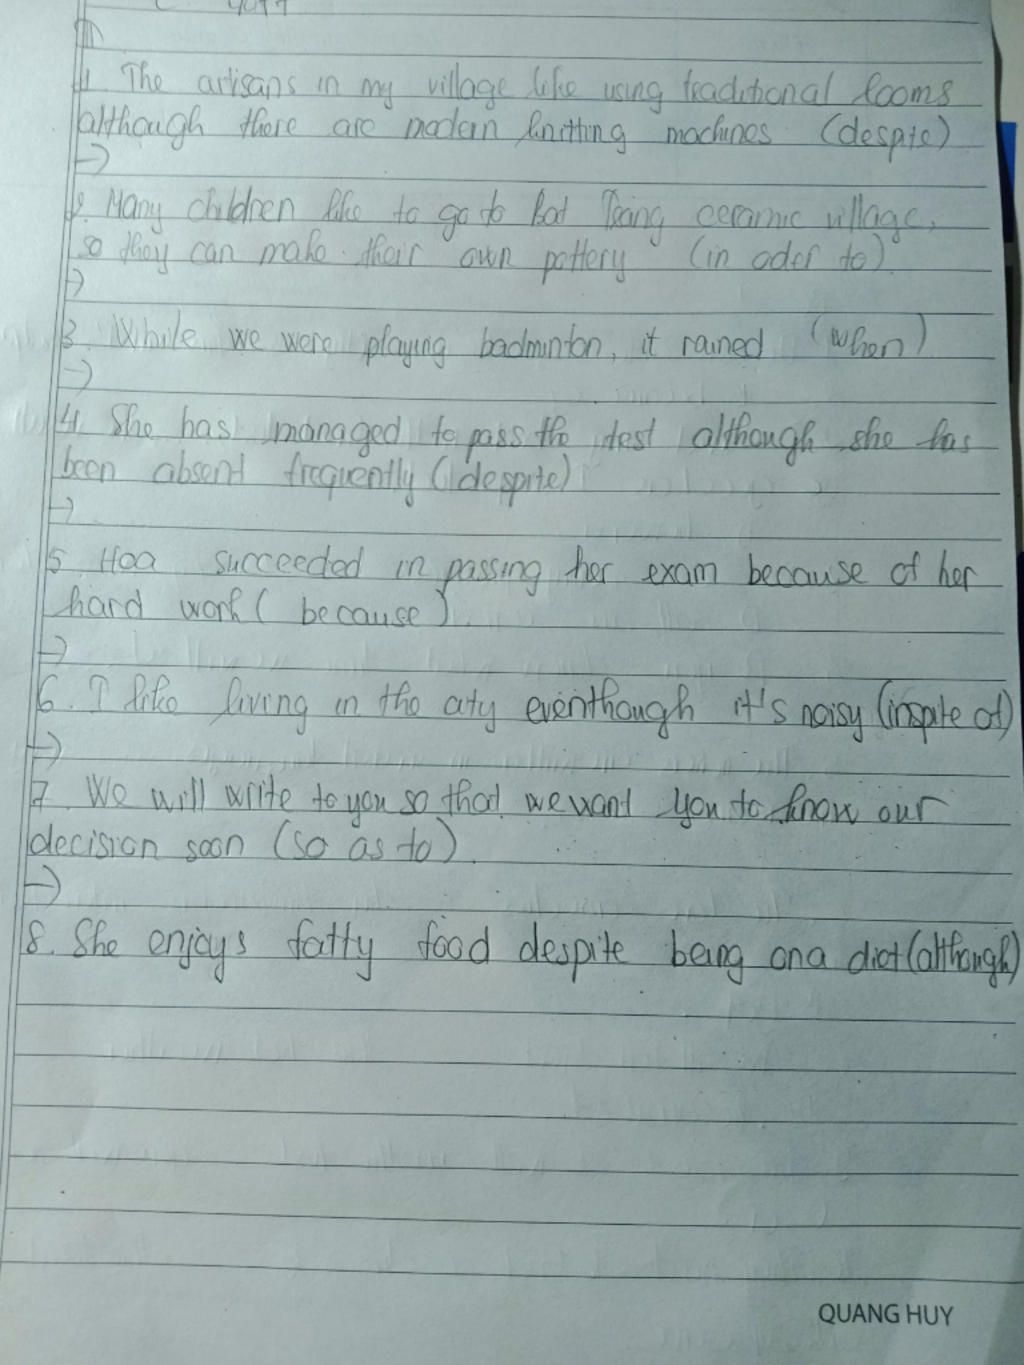 1. The artisans in my village like using traditional looms
although there are modern knitting machines (despite)
→
2. Many children like to go to Bat Trang ceramic village,
so they can make their own pottery (in oder to)
→
3. While we were playing badminton, it rained (when)
→
4. She has managed to pass the test although she has
been absent frequently (despite)
→
5. Hoa succeeded in passing her exam because of her
hard work (because)
→
6. I like living in the city eventhough it's noisy (inspite of)
→
7. We will write to you so that we want you to know our
decision soon (so as to)
→
8. She enjoys fatty food despite being on a diet (although)
QUANG HUY